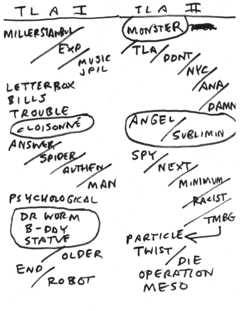 TLA I
MILLERSTANBUL
EXP
MUSIC
JAIL
LETTERBOX
BILLS
TROUBLE
CLOISONNÉ
ANSWER
SPIDER
AUTHEN
MAN
PSYCHOLOGICAL
DR WORM
B-DAY
STATUE
OLDER
END
ROBOT
TLA II
MONSTER
TLA
DONT
NYC
ANA
DAMN
ANGEL
SUBLIMIN
SPY
NEXT
MINIMUM
RACIST
TMBG
PARTICLE
TWIST
DIE
OPERATION
MESO